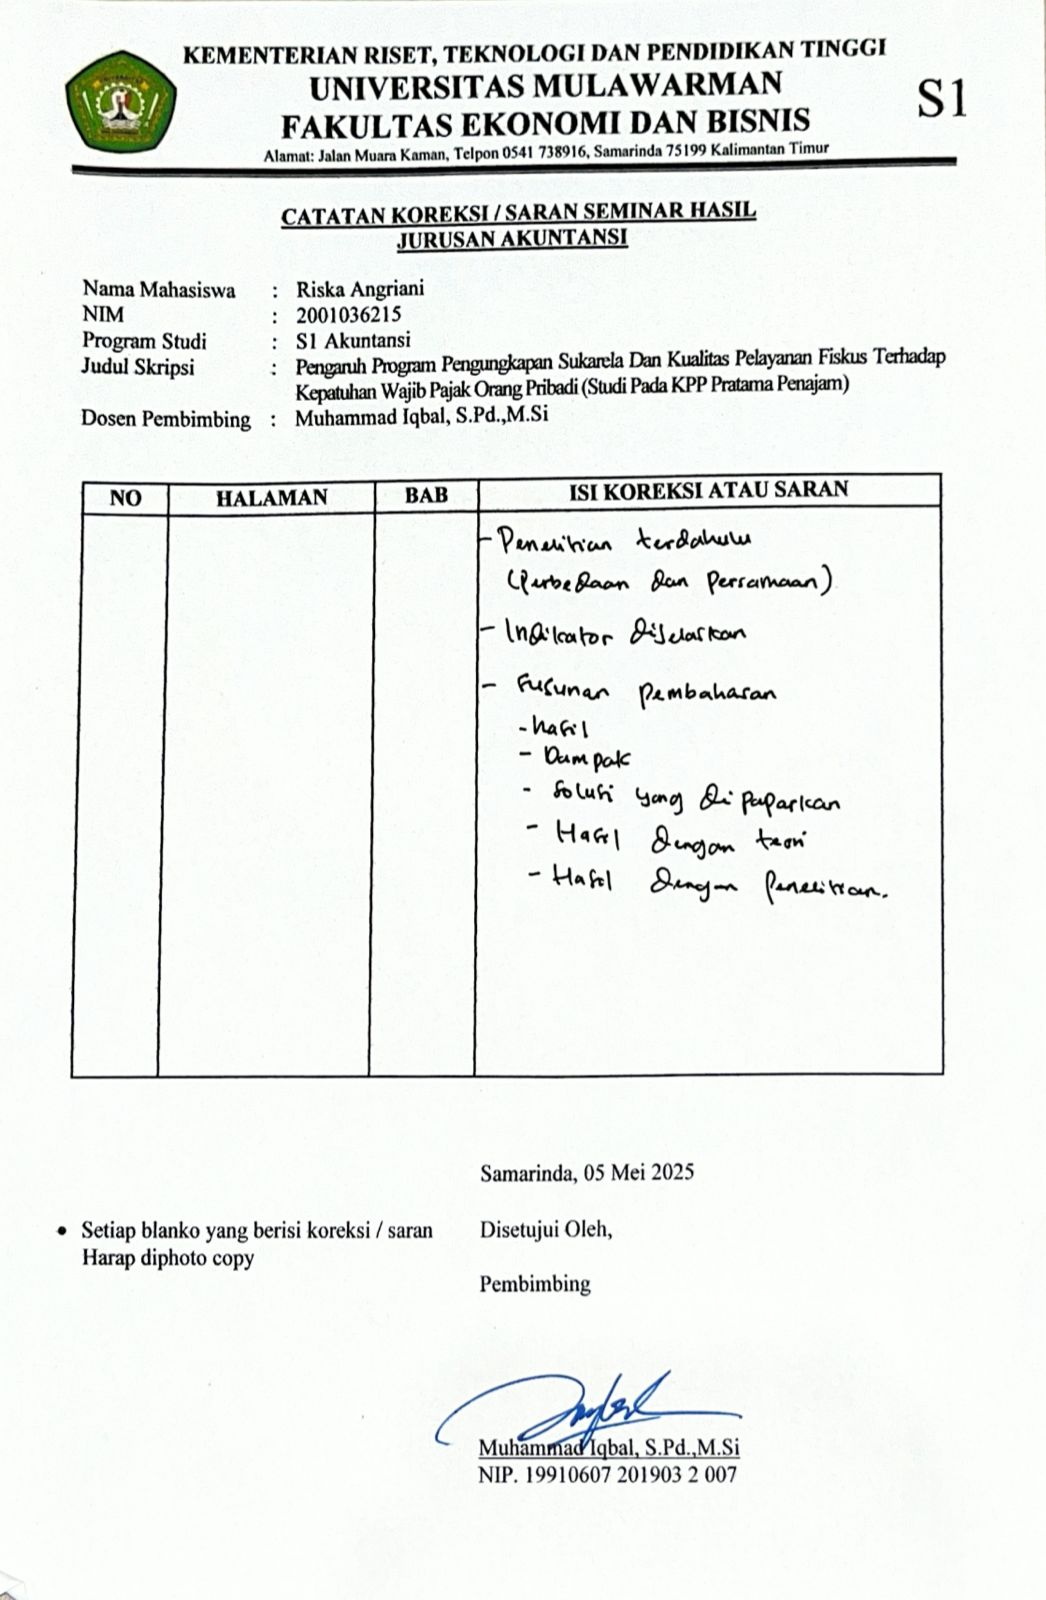 KEMENTERIAN RISET, TEKNOLOGI DAN PENDIDIKAN TINGGI
UNIVERSITAS MULAWARMAN
FAKULTAS EKONOMI DAN BISNIS
S1
Alamat: Jalan Muara Kaman, Telpon 0541 738916, Samarinda 75199 Kalimantan Timur
CATATAN KOREKSI / SARAN SEMINAR HASIL
JURUSAN AKUNTANSI
Nama Mahasiswa : Riska Angriani
NIM : 2001036215
Program Studi : S1 Akuntansi
Judul Skripsi : Pengaruh Program Pengungkapan Sukarela Dan Kualitas Pelayanan Fiskus Terhadap
Kepatuhan Wajib Pajak Orang Pribadi (Studi Pada KPP Pratama Penajam)
Dosen Pembimbing : Muhammad Iqbal, S.Pd.,M.Si
NO HALAMAN BAB ISI KOREKSI ATAU SARAN
- Penelitian terdahulu
(Perbedaan dan Persamaan)
- Indikator dijelaskan
- Susunan pembahasan
- hasil
- Dampak
- Solusi yang dipaparkan
- Hasil dengan teori
- Hasil dengan Penelitian.
Samarinda, 05 Mei 2025
• Setiap blanko yang berisi koreksi / saran
Harap diphoto copy
Disetujui Oleh,
Pembimbing
Muhammad Iqbal, S.Pd.,M.Si
NIP. 19910607 201903 2 007